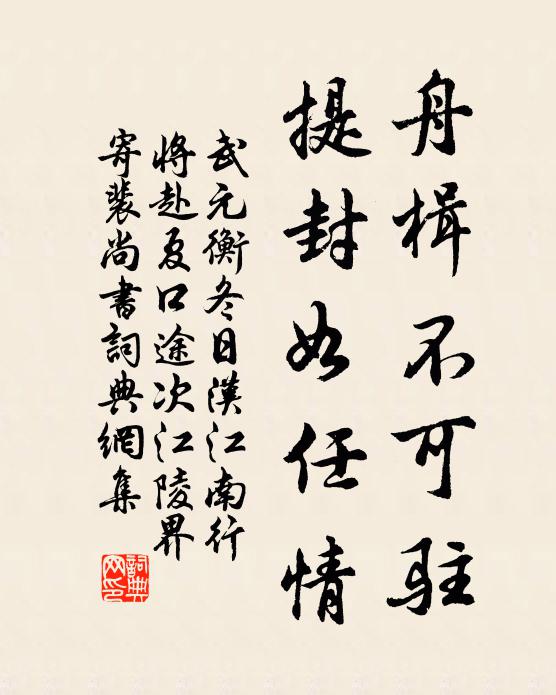 舟楫不可驻
提封如任情
武元衡冬日漢江南行
將赴夏口途次江陵界
寄裴尚書詞典網集
詞典网印